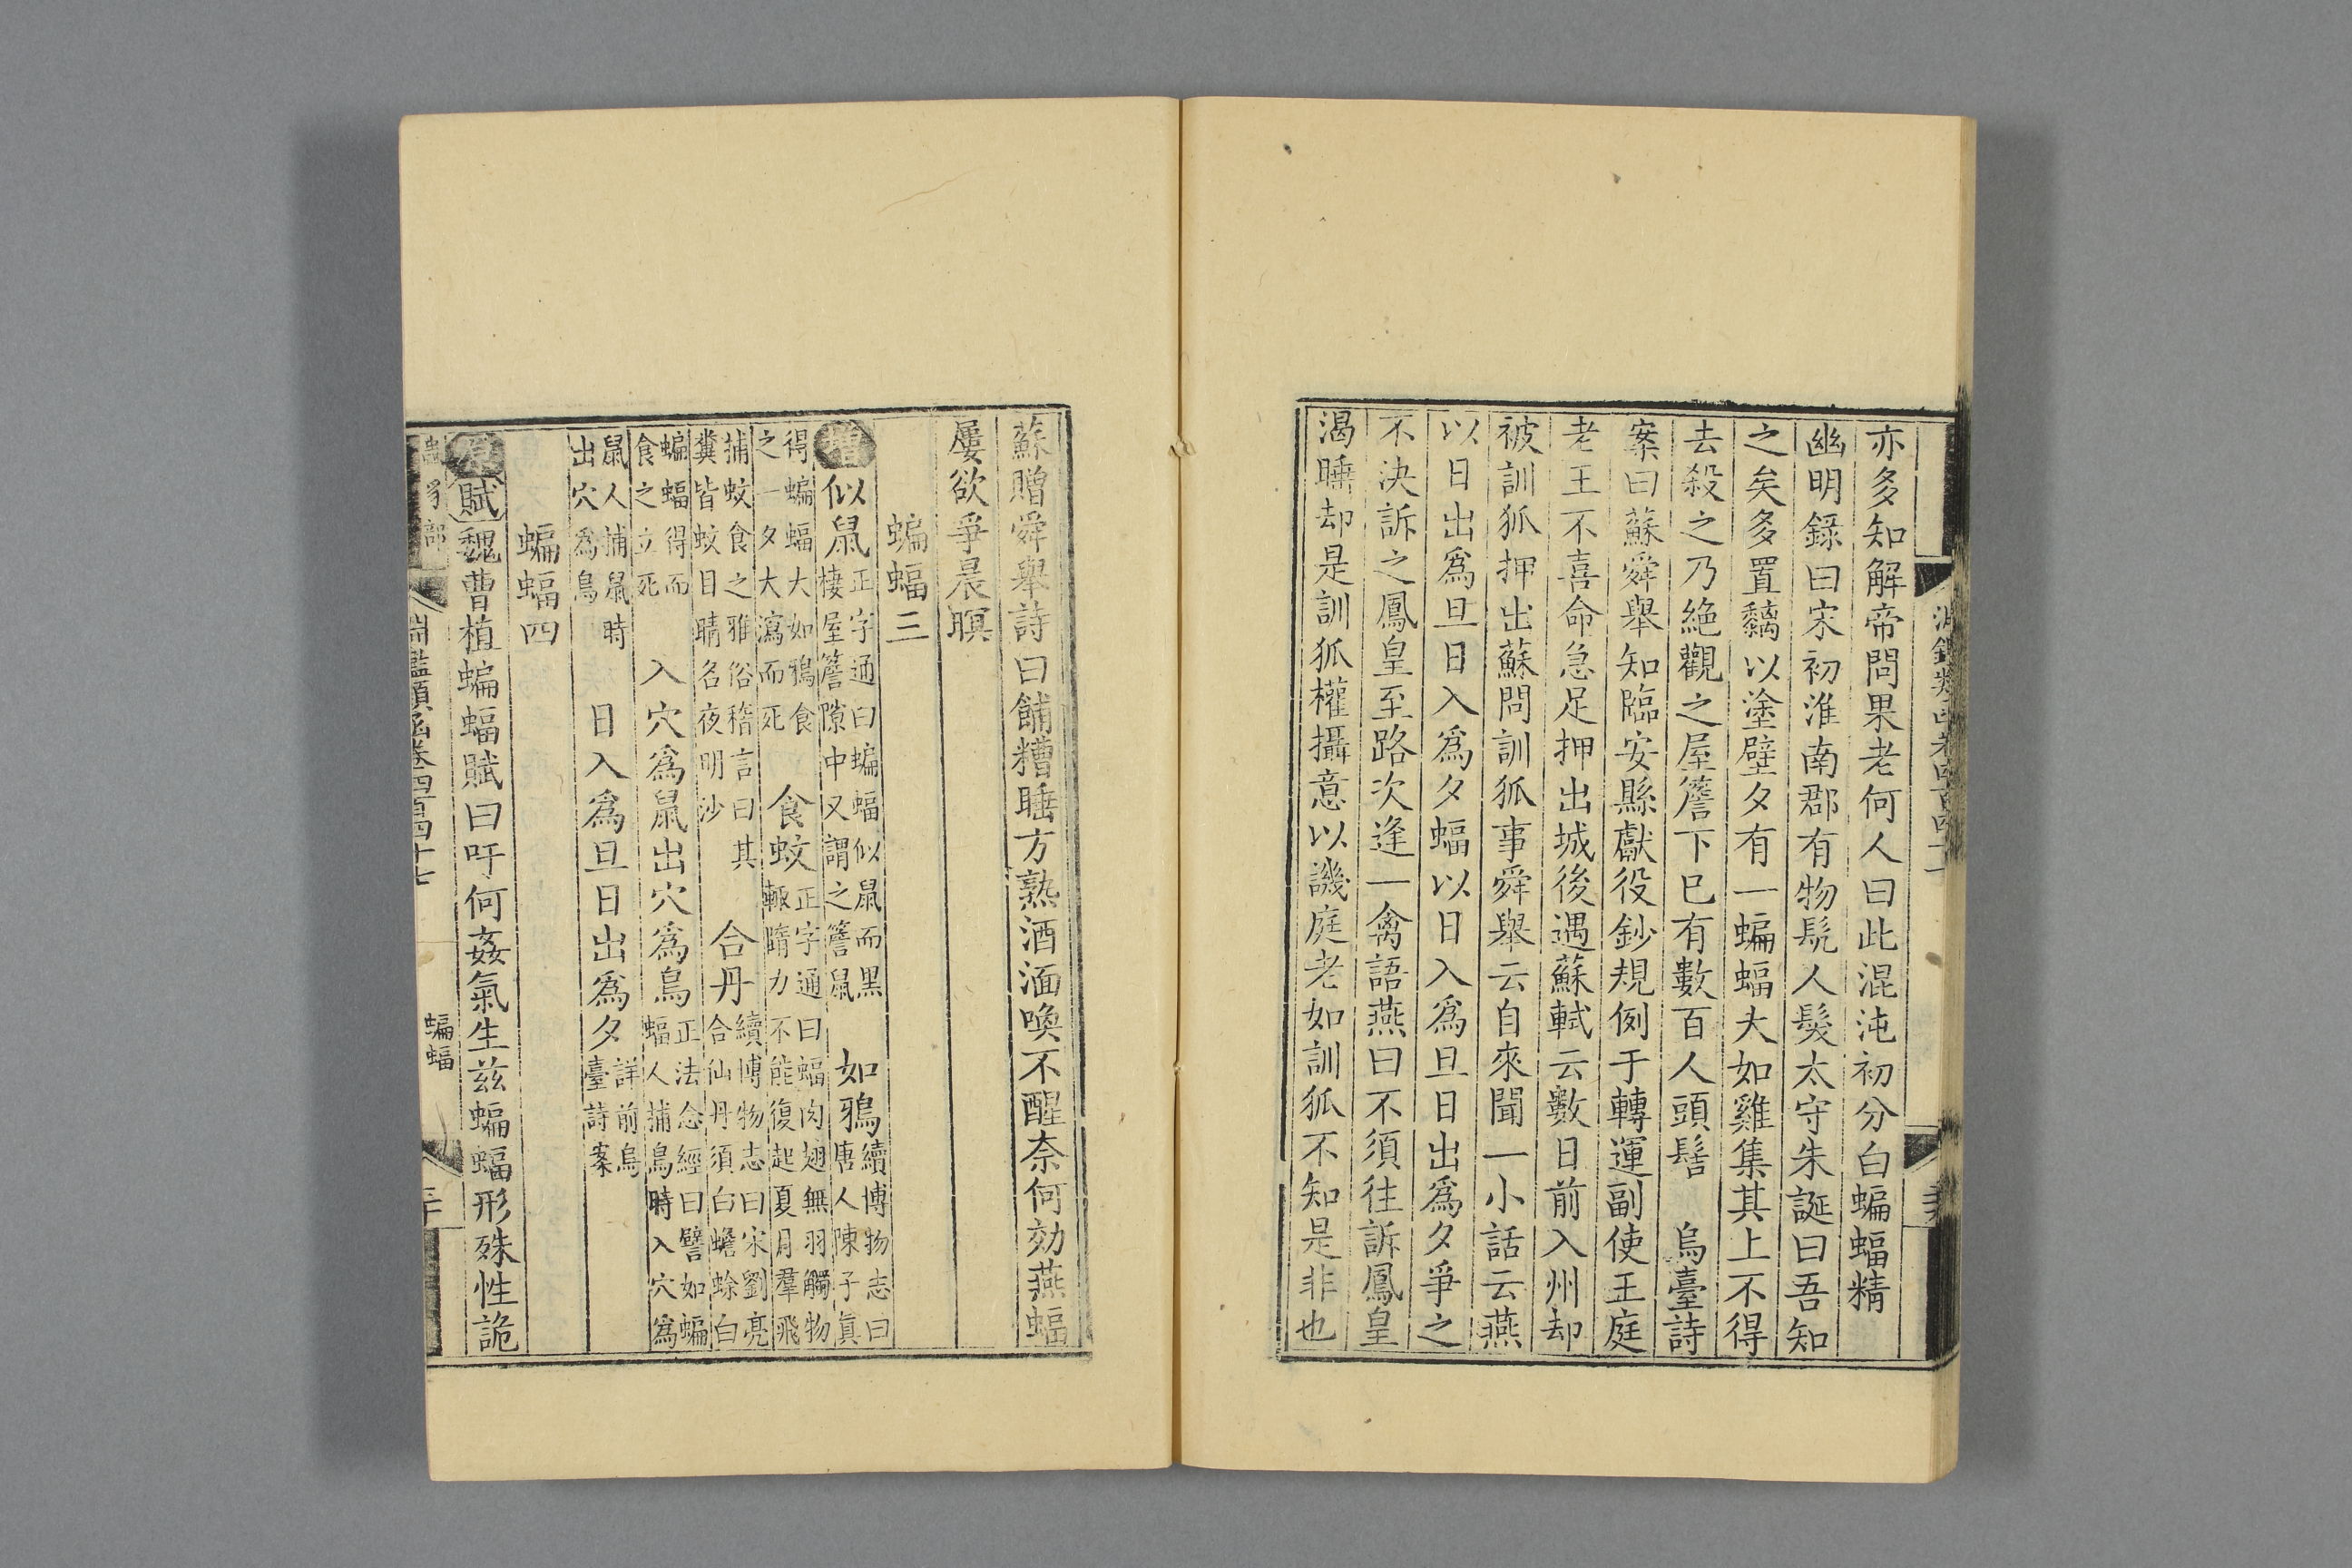 亦多知解帝問果老何人曰此混沌初分白蝙蝠精
幽明錄曰宋初淮南郡有物髡人髮太守朱誕曰吾知
之矣多置黐以塗壁夕有一蝙蝠大如雞集其上不得
去殺之乃絕觀之屋簷下已有數百人頭髻　烏臺詩
案曰蘇舜舉知臨安縣獻役鈔規例于轉運副使王庭
老王不喜命急足押出城後遇蘇軾云數日前入州却
被訓狐押出蘇問訓狐事舜舉云自來聞一小話云燕
以日出爲旦日入爲夕蝠以日入爲旦日出爲夕爭之
不決訴之鳳皇至路次逢一禽語燕曰不須往訴鳳皇
渴睡却是訓狐權攝意以譏庭老如訓狐不知是非也
蘇贈舜舉詩曰餔糟睡方熟酒湎喚不醒奈何効燕蝠
屢欲爭晨暝
蝙蝠三
增似鼠正字通曰蝙蝠似鼠而黑棲屋簷隙中又謂之簷鼠　如鴉續博物志曰唐人陳子眞
得蝙蝠大如鴉食之一夕大瀉而死　食蚊正字通曰蝠肉翅無羽觸物輙墮力不能復起夏月羣飛
捕蚊食之雅俗稽言曰其糞皆蚊目睛名夜明沙　合丹續博物志曰宋劉亮合仙丹須白蟾蜍白
蝙蝠得而食之立死　入穴爲鼠出穴爲鳥正法念經曰譬如蝙蝠人捕鳥時入穴爲
鼠人捕鼠時出穴爲鳥　日入爲旦日出爲夕詳前烏臺詩案
蝙蝠四
原賦魏曹植蝙蝠賦曰吁何姦氣生兹蝙蝠形殊性詭
淵鑑類函卷四百四十七
蝙蝠